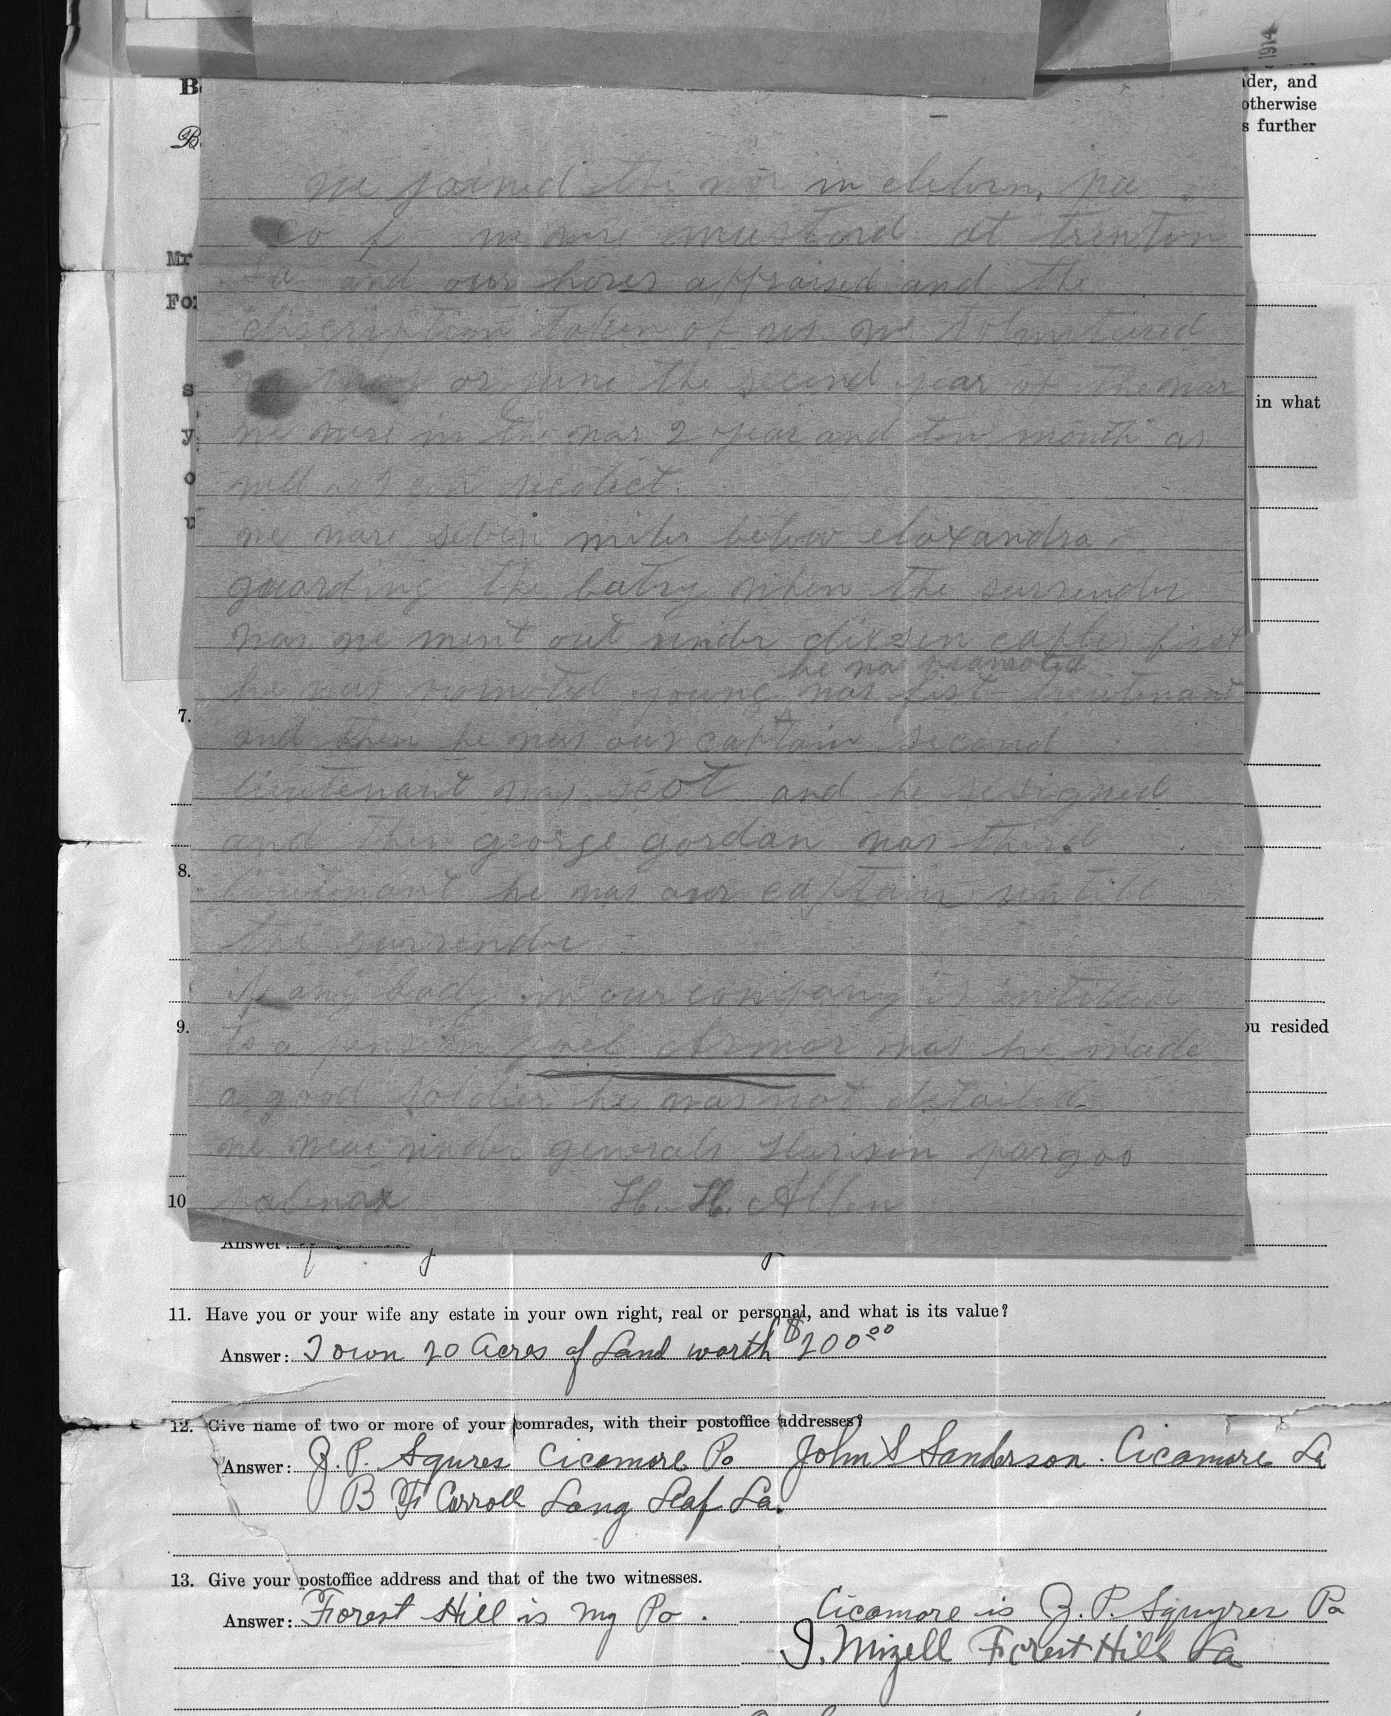 1914
ader, and
otherwise
s further
B
Mr
we joined the war in cleborn, pa
co f we were mustord at trenton
La and our horses appraised and the
discription taken of us we volmteered
in may or june the second year of the war
we were in the war 2 year and ten month as
well as I can recolect.
we ware seben miles below eloxandra
guarding the batry when the surrender
was we went out under dixsen capter first
he was promoted
he was romoted young was fist lieutenant
and then he was our captain second
lieutenant was scot and he resigned
and then george gordan was third
lieutenant he was our captain untill
the surrender
if any body in our company is intitled
to a pension Armor was he made
a good soldier he was not detailed
we wear under generals Harison pargoo
H. H. Allen
in what
7.
8.
9.
ou resided
10
Answer:
11. Have you or your wife any estate in your own right, real or personal, and what is its value?
Answer: I own 20 Acres of Land worth $200.00
12. Give name of two or more of your comrades, with their postoffice addresses?
Answer: J. P. Squres Cicamore Po John S Sanderson. Cicamore La
B F Carroll Long Leaf La.
13. Give your postoffice address and that of the two witnesses.
Answer: Forest Hill is my Po. Cicamore is J. P. Squyres Po
I. Mizell Forest Hill La